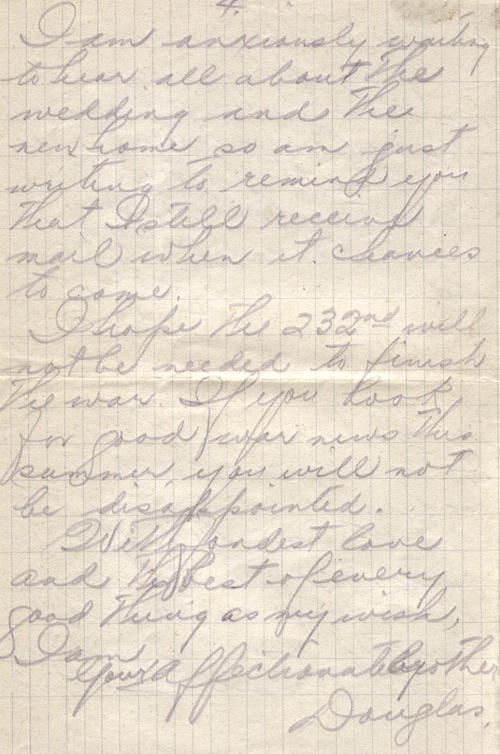 4.
I am anxiously waiting
to hear all about the
wedding and the
new home so am just
writing to remind you
that I still receive
mail when it chances
to come.
I hope the 232nd will
not be needed to finish
the war. If you look
for good war news this
summer you will not
be disappointed.
With fondest love
and the best of every
good thing as my wish,
I am
Your affectionate brother
Douglas.